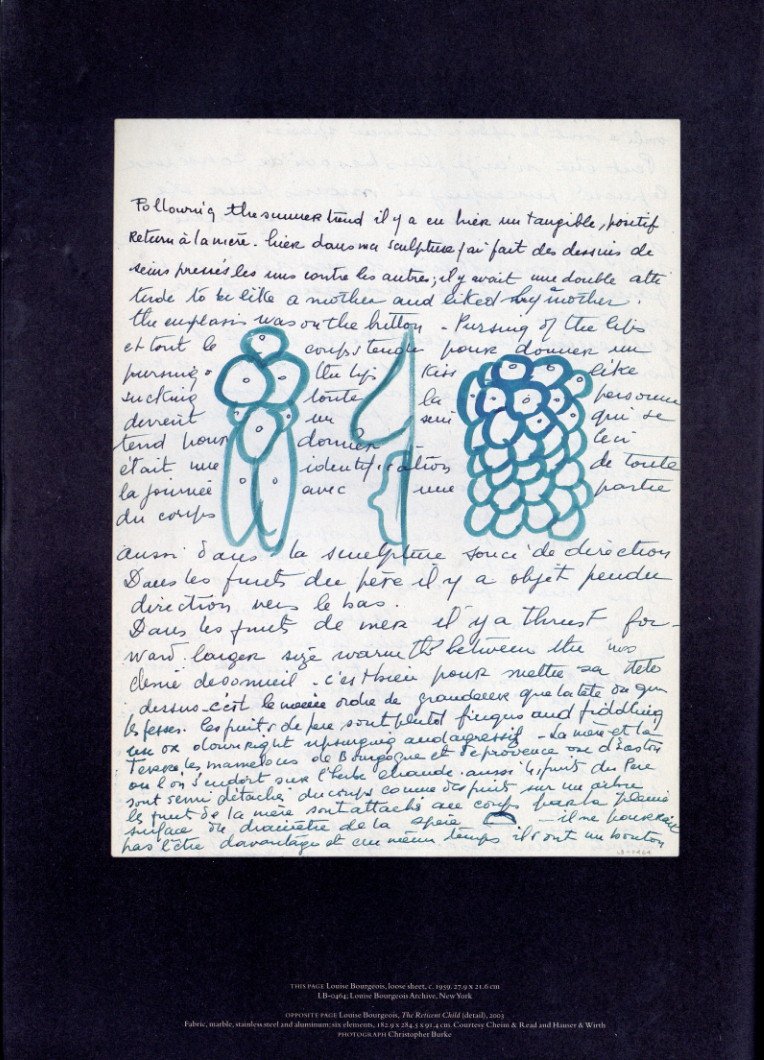 Following the summer trend il y a eu hier un tangible, positif
Return à la mère. hier dans ma sculpture j'ai fait des dessins de
seins pressés les uns contre les autres; il y avait une double atti
tude to be like a mother and liked by mother.
the emphasis was on the button - Pursing of the lips
et tout le corps tendu pour donner un
pursing the lips kiss like
sucking toute la personne
devient un sein qui se
tend pour donner ceci
était une identification de toute
la journée avec une partie
du corps
aussi dans la sculpture souci de direction
Dans les fruits du père il y a objet pendu
direction vers le bas.
Dans les fruits de mer il y a thrust for-
ward larger size warmth between the
de sommeil - c'est bien pour mettre sa tete
dessus - c'est le meme ordre de grandeur que la tete ou que
les fesses. les fruits de pere sont plutot fingers and fiddling
downright upsurging and agressif - La mère et la
Terre, les mamelons de Bourgogne et de provence ou d'Easton
ou l'on s'endort sur l'herbe chaude. aussi les fruits du Pere
sont demi détachés du corps comme des fruits sur un arbre
les fruits de la mère sont attachés au corps par la pleine
surface du diamètre de la sphère - il ne pourrait
pas l'être davantage et en même temps ils ont un bouton
LB-0464
THIS PAGE Louise Bourgeois, loose sheet, c. 1959. 27.9 x 21.6 cm
LB-0464; Louise Bourgeois Archive, New York
OPPOSITE PAGE Louise Bourgeois, The Reticent Child (detail), 2003
Fabric, marble, stainless steel and aluminum: six elements, 182.9 x 284.5 x 91.4 cm. Courtesy Cheim & Read and Hauser & Wirth
PHOTOGRAPH Christopher Burke